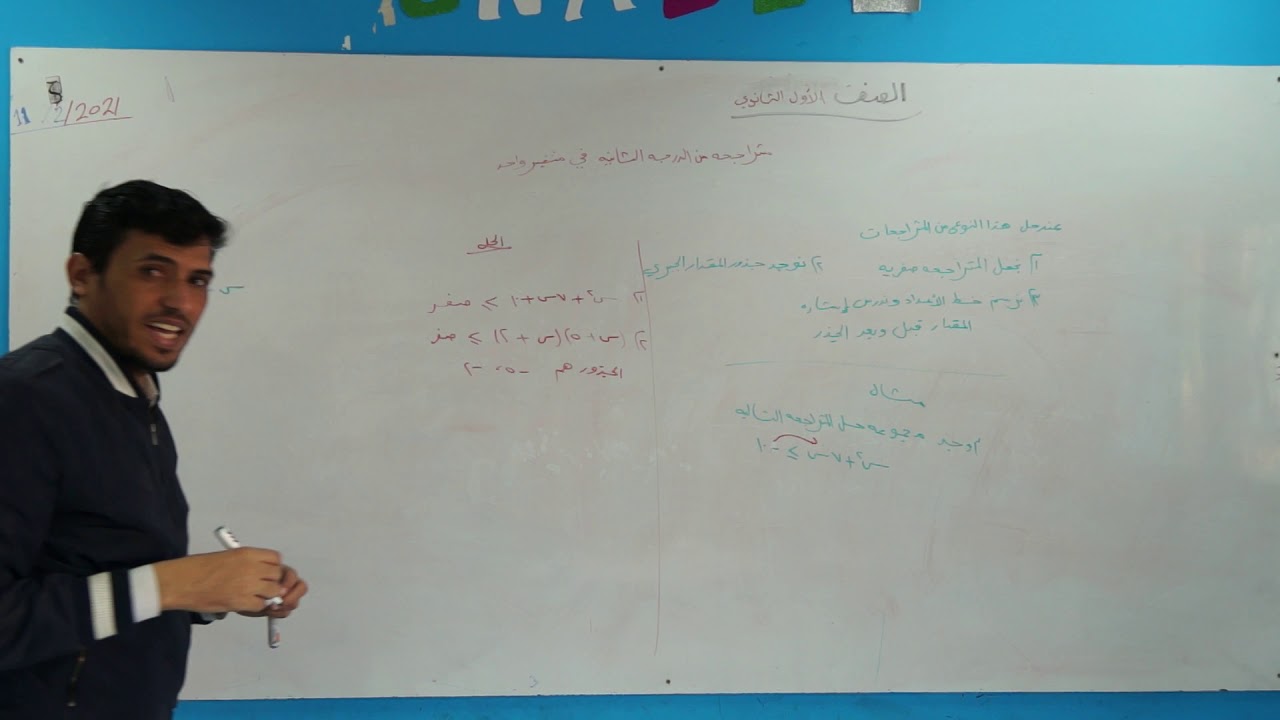 الصف الأول الثانوي
11/2/2021
متراجحه من الدرجه الثانيه في متغير واحد
عند حل هذا النوع من المتراجحات
١) نجعل المتراجحه صفريه ٢) نوجد جذور المقدار الجبري
٣) نرسم خط الأعداد وندرس إشاره
المقدار قبل وبعد الجذر
مثال
اوجد مجموعه حل المتراجحه التاليه
س٢ + ٧س ≥ -١٠
الحل
١) س٢ + ٧س + ١٠ ≥ صفر
٢) (س + ٥)(س + ٢) ≥ صفر
الجذور هم -٥، -٢
س